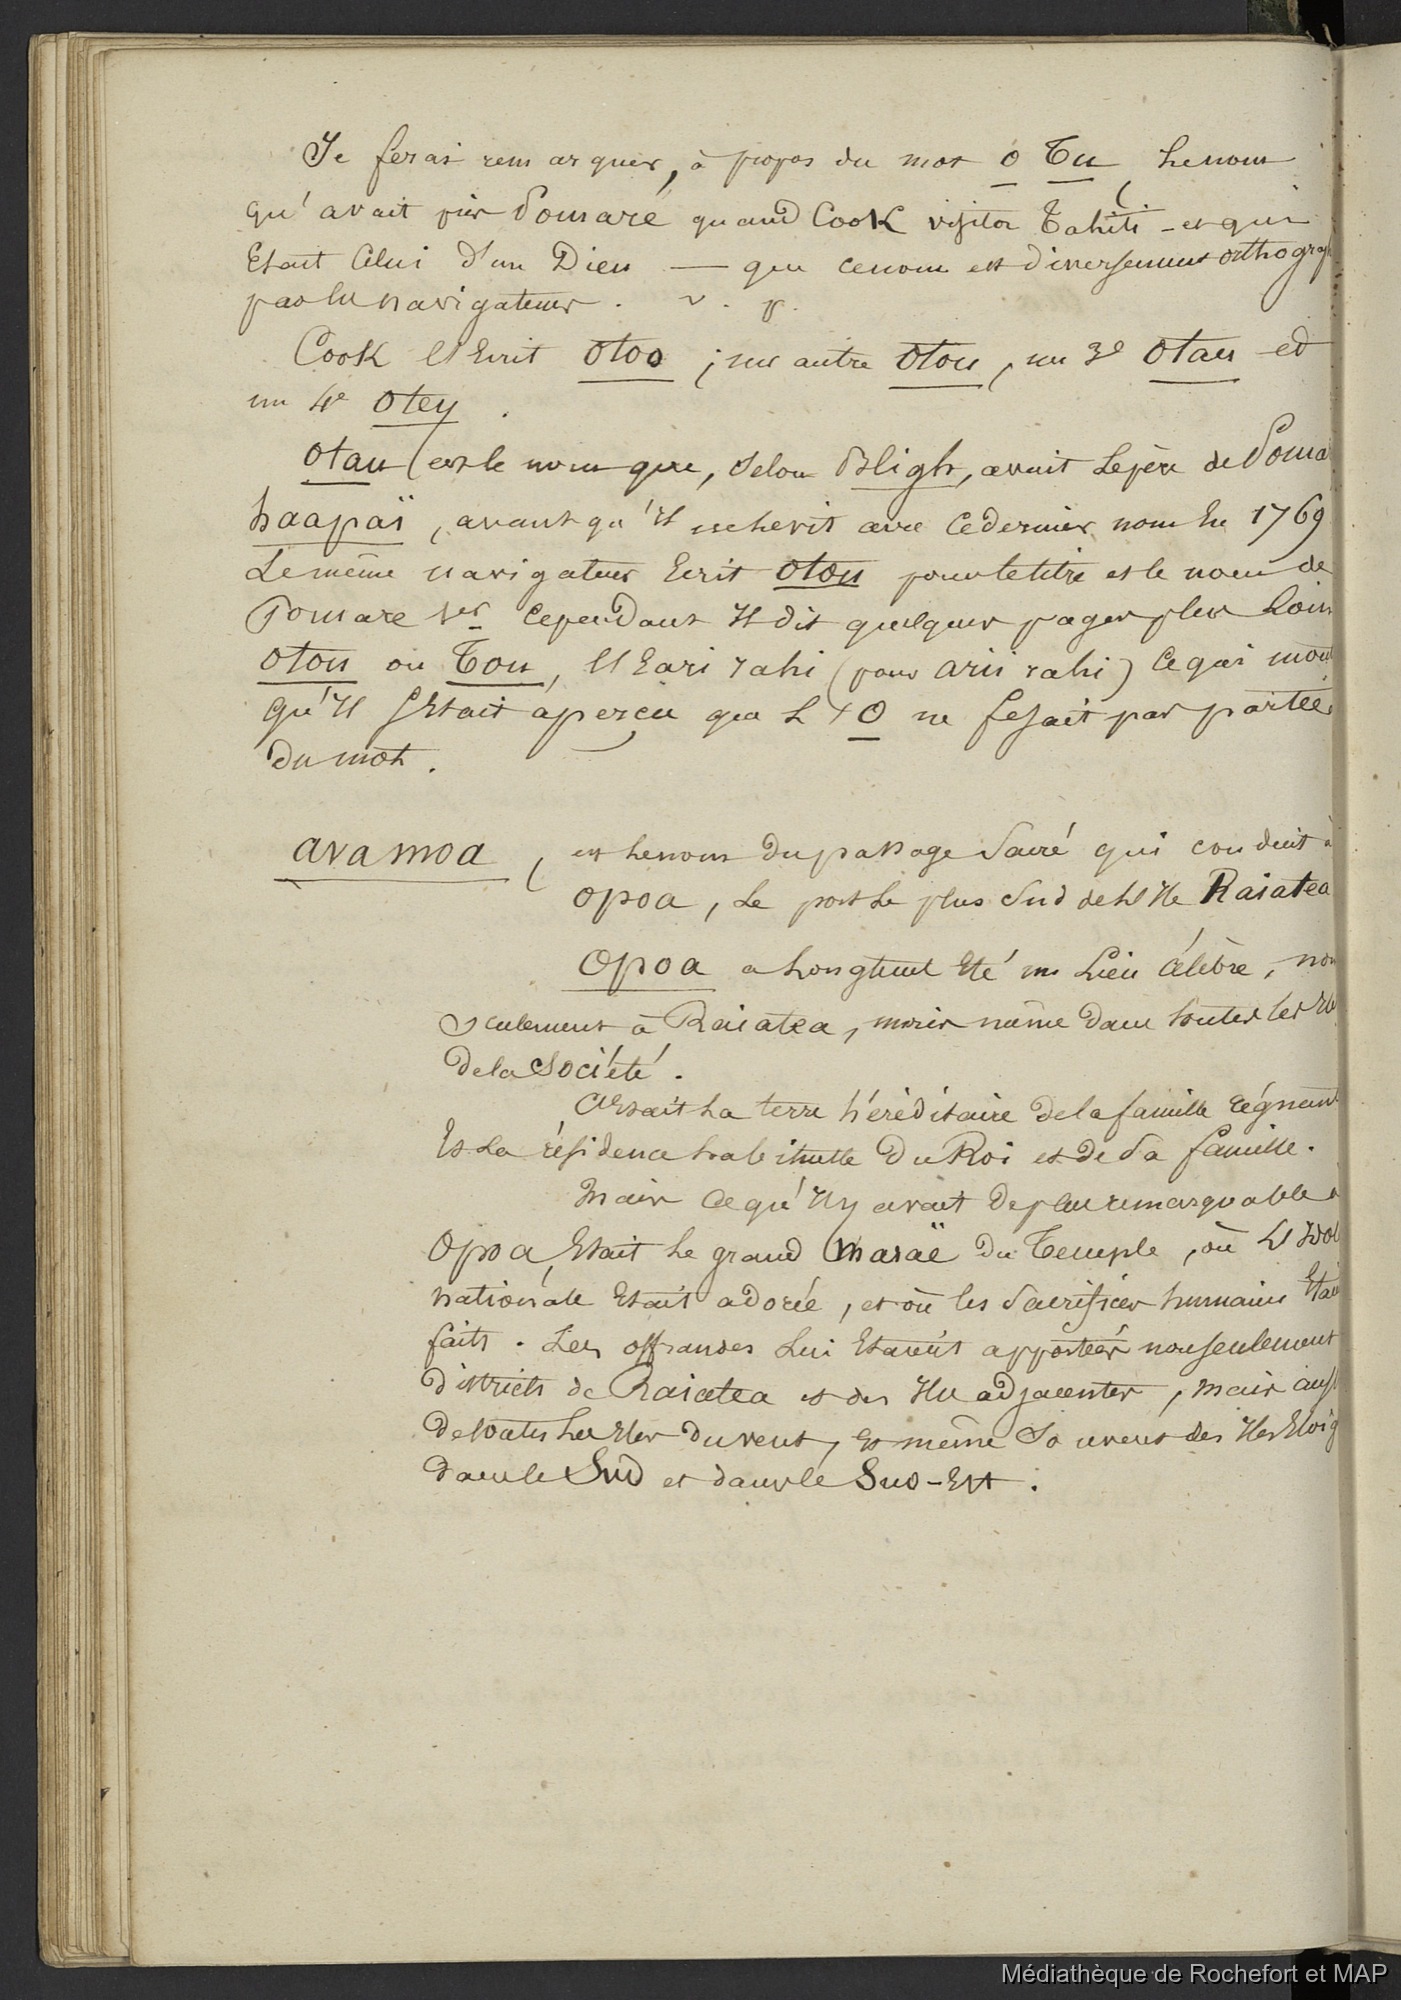 Je ferai remarquer, à propos du mot O Tu, le nom
qu'avait pris Pomaré quand Cook visita Tahiti - et qui
Etait Celui d'un Dieu — que ce nom est diversement orthograp
par les navigateurs. v. p.
Cook l'Ecrit Otoo ; un autre Otou, un 3e Otau et
un 4e Otey.
Otau est le nom que, selon Bligh, avait le père de Poma
haapaï, avant qu'il avec ce dernier nom En 1769
Le même navigateur Ecrit Otou pour le titre et le nom de
Pomare 1er Cependant Il dit quelques pages plus Loin
Otou ou Tou, l'Eari rahi (pour arii rahi) Ce qui mont
qu'Il s'Etait aperçu que L'O ne fesait pas partie
Du mot.
avamoa, est le nom du passage Sacré qui conduit à
Opoa, Le port Le plus Sud de L'Ile Raiatea
Opoa a Longtems Eté un Lieu Célèbre, non
Seulement à Raiatea, mais même dans toutes les Iles
De la Société.
C'Etait La terre héréditaire De la famille régnant
Et La résidence habituelle Du Roi et de Sa famille.
Mais Ce qu'Il y avait De plus remarquable à
Opoa, Etait Le grand Maraë Du Temple, où L'Idol
nationale Etait adorée, et où les Sacrifices humains Etai
faits. Les offrandes Lui Etaient apportées non seulement
Districts de Raiatea et des Iles adjacentes, mais auss
De toutes Les Iles Du vent, Et même Souvent des Iles Eloig
Dans le Sud et dans le Sud-Est.
Médiathèque de Rochefort et MAP